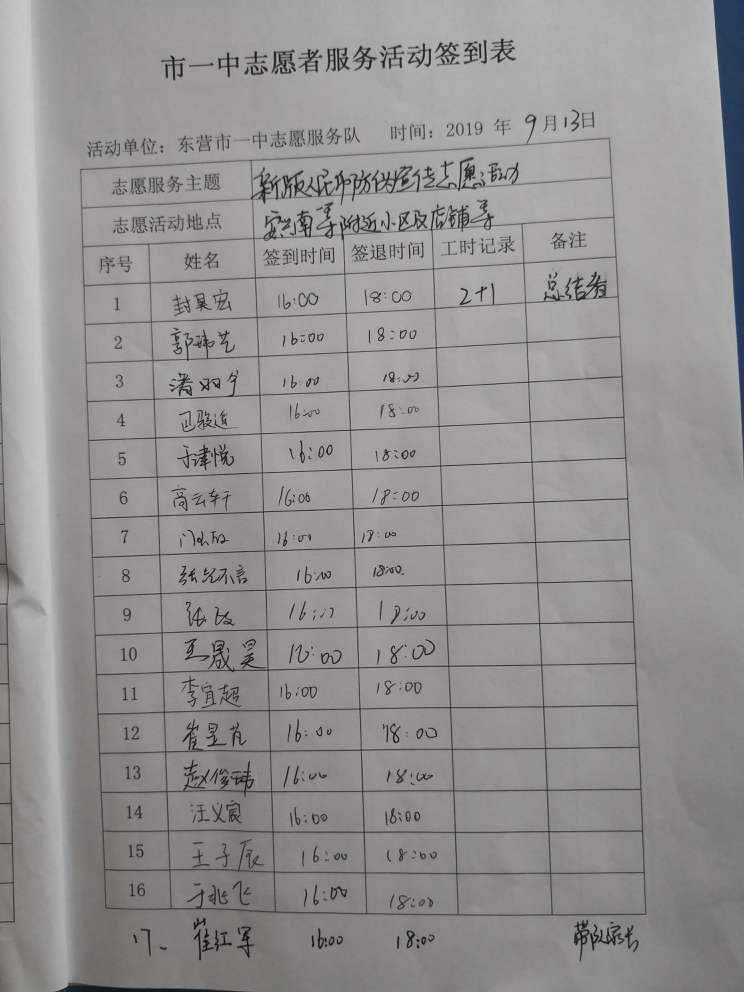 市一中志愿者服务活动签到表
活动单位：东营市一中志愿服务队 时间：2019 年 9 月 13 日
志愿服务主题 新版人民币防伪宣传志愿活动
志愿活动地点 安兴南等附近小区及店铺等
序号 姓名 签到时间 签退时间 工时记录 备注
1 封昊宏 16:00 18:00 2+1 总结者
2 郭玮艺 16:00 18:00
3 16:00 18:00
4 16:00 18:00
5 于津悦 16:00 18:00
6 高云轩 16:00 18:00
7 16:00 18:00
8 16:00 18:00
9 16:00 18:00
10 王晟昊 16:00 18:00
11 李宜超 16:00 18:00
12 16:00 18:00
13 赵俊玮 16:00 18:00
14 汪义宸 16:00 18:00
15 王子辰 16:00 18:00
16 于兆飞 16:00 18:00
17、 崔红军 16:00 18:00 带队家长